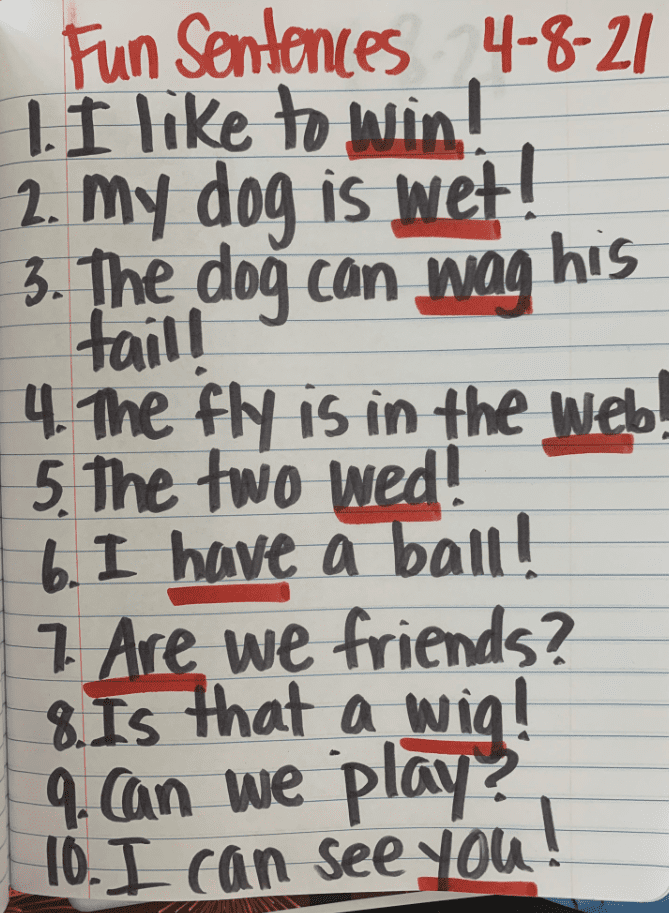 Fun Sentences 4-8-21
1. I like to win!
2. my dog is wet!
3. The dog can wag his
tail!
4. The fly is in the web!
5. The two wed!
6. I have a ball!
7. Are we friends?
8. Is that a wig!
9. Can we play?
10. I can see you!